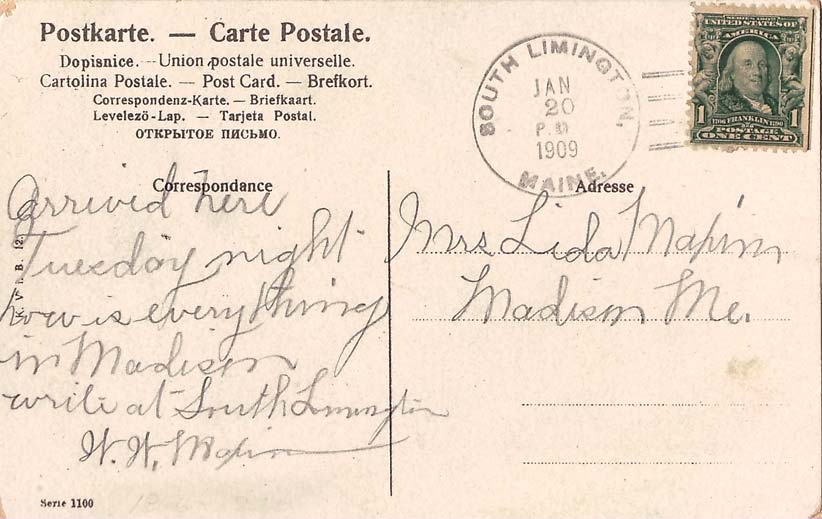 Postkarte. — Carte Postale.
Dopisnice. — Union postale universelle.
Cartolina Postale. — Post Card. — Brefkort.
Correspondenz-Karte. — Briefkaart.
Levelező-Lap. — Tarjeta Postal.
ОТКРЫТОЕ ПИСЬМО.
SOUTH LIMINGTON,
JAN
20
1909
MAINE.
SERIES 1902
UNITED STATES OF
AMERICA
1 FRANKLIN 1
1706 1790
POSTAGE
ONE CENT
Correspondance
Arrived here
Tuesday night
how is everything
in Madison
write at South Limington
W. W.
Adresse
Mrs Lida
Madison Me.
Serie 1100